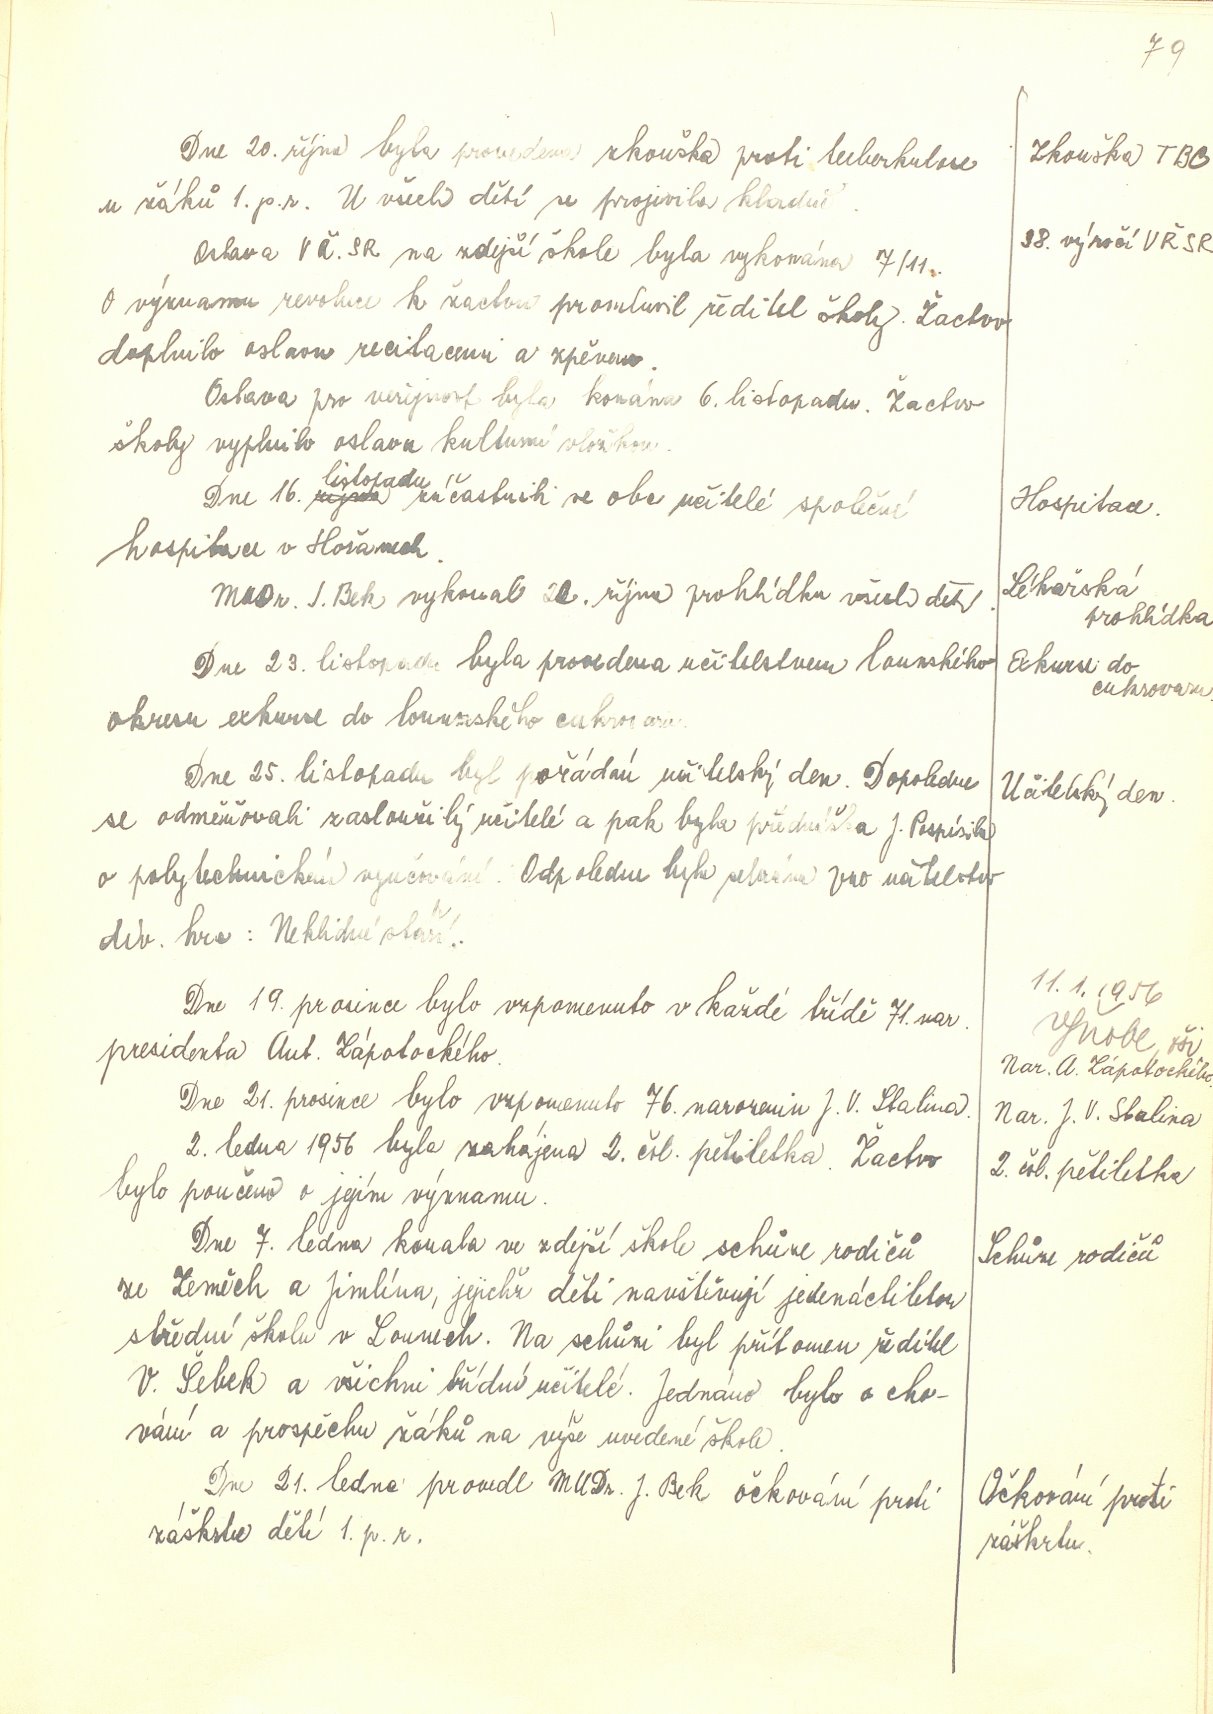 79
Dne 20. října byla provedena zkouška proti tuberkulose
u žáků 1. p. r. U všech dětí se projevila kladně.
Zkouška TBC
Oslava VŘ.SR na zdejší škole byla vykonána 7/11.
38. výročí VŘSR
O významu revoluce k žactvu promluvil ředitel školy. Žactvo
doplnilo oslavu recitacemi a zpěvem.
Oslava pro veřejnost byla konána 6. listopadu. Žactvo
školy vyplnilo oslavu kulturní vložkou.
Dne 16. listopadu zúčastnili se oba učitelé společné
hospitace v Hořanech.
Hospitace.
MUDr. J. Bek vykonal října prohlídku všech dětí.
Lékařská
prohlídka
Dne 23. listopadu byla provedena učitelstvem lounského
okresu exkurse do lounského cukrovaru.
Exkurse do
cukrovaru.
Dne 25. listopadu byl pořádán učitelský den. Dopoledne
se odměňovali zasloužilý učitelé a pak byla přednáška J. Pospíšila
o polytechnickém vyučování. Odpoledne byla sehrána pro učitelstvo
div. hra: Neklidné stáří.
Učitelský den.
Dne 19. prosince bylo vzpomenuto v každé třídě 71. nar.
presidenta Ant. Zápotockého.
11. 1. 1956
Nar. A. Zápotockého
Dne 21. prosince bylo vzpomenuto 76. narozenin J. V. Stalina.
Nar. J. V. Stalina
2. ledna 1956 byla zahájena 2. čsl. pětiletka. Žactvo
bylo poučeno o jejím významu.
2. čsl. pětiletka
Dne 7. ledna konala ve zdejší škole schůze rodičů
ze Zeměch a Jimlína, jejichž děti navštěvují jedenáctiletou
střední školu v Lounech. Na schůzi byl přítomen ředitel
V. Šebek a všichni třídní učitelé. Jednáno bylo o cho-
vání a prospěchu žáků na výše uvedené škole.
Schůze rodičů
Dne 21. ledna provedl MUDr. J. Bek očkování proti
záškrtu dětí 1. p. r.
Očkování proti
záškrtu.